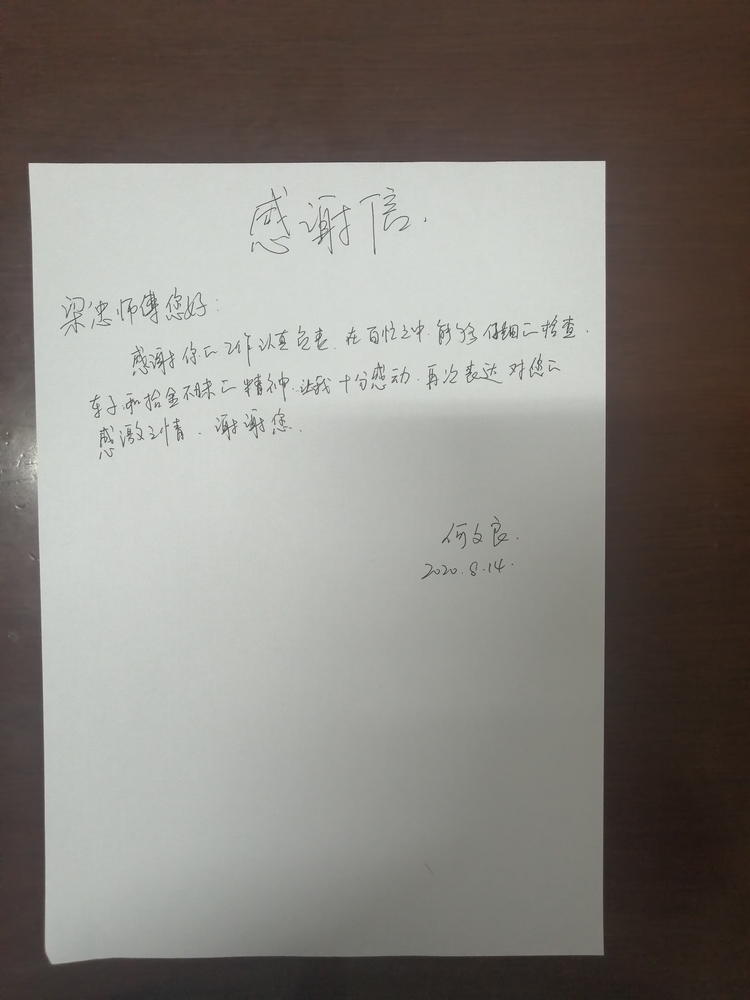 感谢信.
梁忠师傅您好:
感谢你的工作认真负责.在百忙之中.能够仔细的检查.
车子.和拾金不昧的精神.让我十分感动.再次表达对您的
感激之情.谢谢您.
何文良.
2020.8.14.